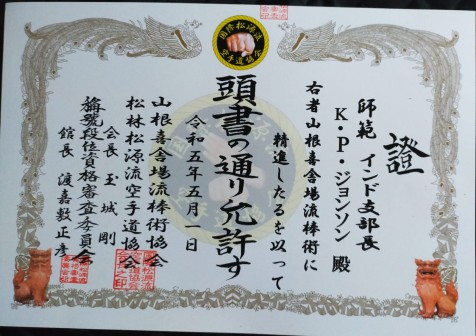 證
師範 インド支部長
K・P・ジョンソン 殿
右者山根喜舎場流棒術に
精進したるを以って
頭書の通り允許す
令和五年五月一日
山根喜舎場流棒術協会
松林松源流空手道協会
会長 玉城 剛
稱號段位資格審査委員会
館長 渡嘉敷正彦
国際松源流
空手道協会